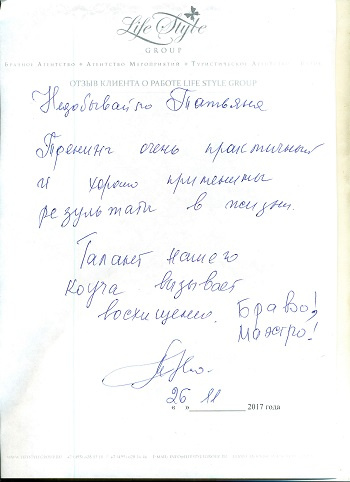 Life Style
GROUP
Брачное Агентство • Агентство Мероприятий • Туристическое
ОТЗЫВ КЛИЕНТА О РАБОТЕ LIFE STYLE GROUP
Недобывайло Татьяна
Тренинг очень практичный
и хорошо применимы
результати в жизни.
Талант нашего
коуча визывает
восхищение. Браво!
Маэстро!
26 11
« » 2017 года